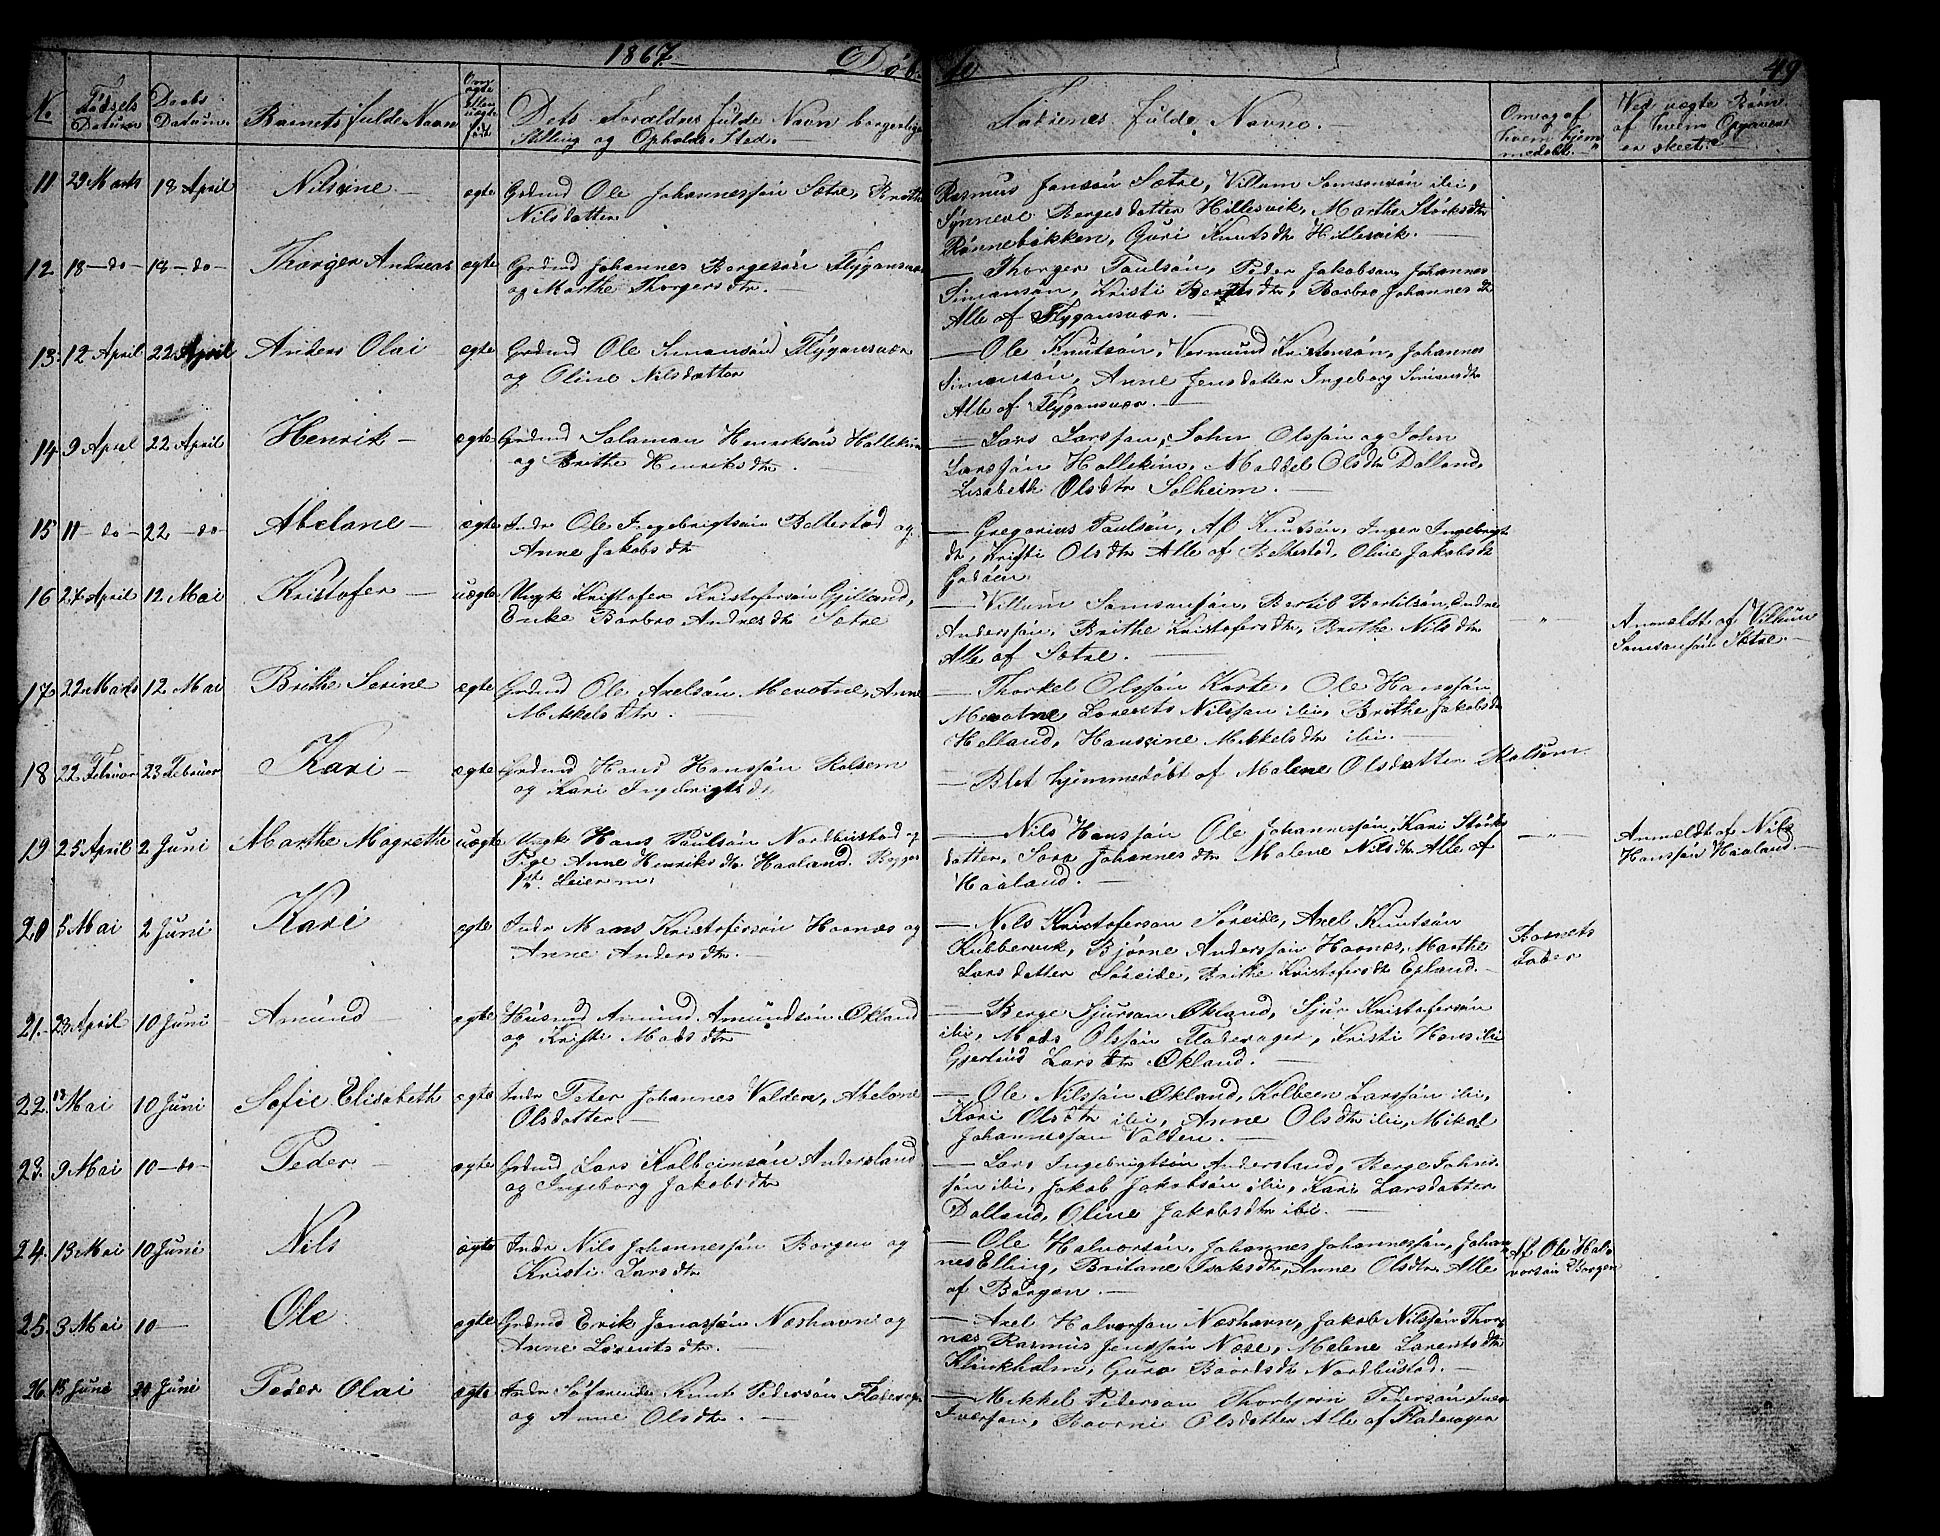 1867. Døb- te 49
No. Fødsels Datum Daabs Datum. Barnets fulde Navn Om ægte eller uægte født Dets Forældres fulde Navn borgerlige Stilling og Opholds Sted. Faddernes fulde Navne. Om og af hvem hjemmedøbt. Ved uægte Børn af hvem Opgaven er skeet.
11 29 Marts 18 April Nilsine ægte Grdmd Ole Johannessøn Sætre, Brithe
Nilsdatter
Rasmus Jonsøn Sætre, Villum Samsonsøn ibi,
Synneve Bergesdatter Hillesvik, Marthe Størksdtr
Rønnebikken, Guri Knutsdtr Hillesvik.
12 18 - do - 18 - do - Thorger Andreas ægte Grdmd Johannes Borgesøn Flygansvær
og Marthe Thorgersdtr.
Thorger Paulsøn, Peder Jakobsøn, Johannes
Simonsøn, Kristi Bergesdtr, Barbro Johannesdtr
Alle af Flygansvær.
13 12 April 22 April Anders Olai ægte Grdmd Ole Simonsøn Flygansvær
og Oline Nilsdatter
Ole Knutsøn, Vermund Kristensøn, Johannes
Simonsøn, Anne Jensdatter Ingeborg Simonsdtr
Alle af Flygansvær.
14 9 April 22 April Henrik ægte Grdmd Salamon Henriksøn Hallekim
og Brithe Henriksdtr
Lars Larssøn, John Olssøn og John
Larssøn Hallekim, Maddel Olsdtr Dalland,
Lisabeth Olsdtr Solheim.
15 11 - do - 22 - do Abelane ægte Indr Ole Ingebrigtsøn Beltestad og
Anne Jakobsdtr
Gregorius Paulsøn, Knutsøn, Inger Ingebrigts
dtr, Kristi Olsdtr Alle af Beltestad, Oline Jakobsdtr
16 27 April 12 Mai Kristofer uægte Ungk Kristofer Kristofersøn Gjilland,
Enke Barbro Andresdtr Sætre
Villum Samsonsøn, Bertil Bertilsøn, Endre
Anderssøn, Brithe Kristofersdtr, Brithe Nilsdtr
Alle af Sætre.
Anmeldt af Villum
Samsonsøn Sætre.
17 22 Marts 12 Mai Brithe Serine ægte Grdmd Ole Axelsøn Mevatne, Anne
Mikkelsdtr.
Thorkel Olssøn Korte, Ole Hanssøn
Mevatne, Lorents Nilssøn ibi, Brithe Jakobsdtr
Helland, Hansine Mikkelsdtr ibi.
18 22 Februar 23 Februar Kari ægte Grdmd Hans Hanssøn
og Kari Ingebrigtsdtr
Blet hjemmedøbt af Malene Olsdatter
19 25 April 2 Juni Marthe Magrethe uægte Ungk Hans Paulsøn Nordbustad og
Pige Anne Henriksdtr Haaland. Begges
1ste Leierm.
Nils Hanssøn Ole Johannessøn, Kari Størks
datter, Sara Johannesdtr Malene Nilsdtr Alle af
Haaland.
Anmeldt af Nils
Hanssøn Haaland.
20 5 Mai 2 Juni Kari ægte Indr Mons Kristofersøn Hornæs og
Anne Andersdtr.
Nils Kristofersøn Søreide, Axel Knutsøn
Kubbervik, Bjørne Anderssøn Hornæs, Marthe
Larsdatter Søreide, Brithe Kristofersdtr Epland.
Barnets
Fader
21. 28 April 10 Juni Amund ægte Husmd Amund Amundsøn Økland
og Kristi Madsdtr
Berge Sjursøn Økland, Sjur Kristofersøn
ibi, Mads Olssøn Fladevager, Kristi Hans ibi
Gjertrud Larsdtr Økland.
22. 17 Mai 10 Juni Sofie Elisabeth ægte Indr Peter Johannes Valden, Abelone
Olsdatter.
Ole Nilssøn Økland, Kolbeen Larssøn ibi,
Kari Olsdtr ibi, Anne Olsdtr ibi, Mikal
Johannessøn Valden.
23. 9 Mai 10 - do - Peder ægte Grdmd Lars Kolbeinsøn Andersland
og Ingeborg Jakobsdtr
Lars Ingebrigtsøn Andersland, Berge Johns
søn ibi, Jakob Jakobsøn ibi, Kari Larsdatter
Dalland, Oline Jakobsdtr ibi.
24. 13 Mai 10 Juni Nils ægte Indr Nils Johannessøn Borgen og
Kristi Larsdtr
Ole Halvorsøn, Johannes Johannessøn, Johan
nes Elling, Britane Isaksdtr, Anne Olsdtr Alle
af Borgen.
Af Ole Hal-
vorsøn Borgen
25. 3 Mai 10 Ole ægte Grdmd Erik Jonassøn Næshavn og
Anne Lorentsdtr.
Axel Halvorsøn Næshavn, Jakob Nilssøn Thor
næs Rasmus Jenssøn Næse, Malene Lorentsdtr
Klinkholm, Guro Baardsdtr Nordbustad.
26. 15 Juni 20 Juni Peder Olai ægte Indr Søfarende Knut Pedersøn Fladevager
og Anne Olsdtr.
Mikkel Pedersøn Thorbjørn Pedersøn, Iver
Iversøn, Olsdatter Alle af Fladevager